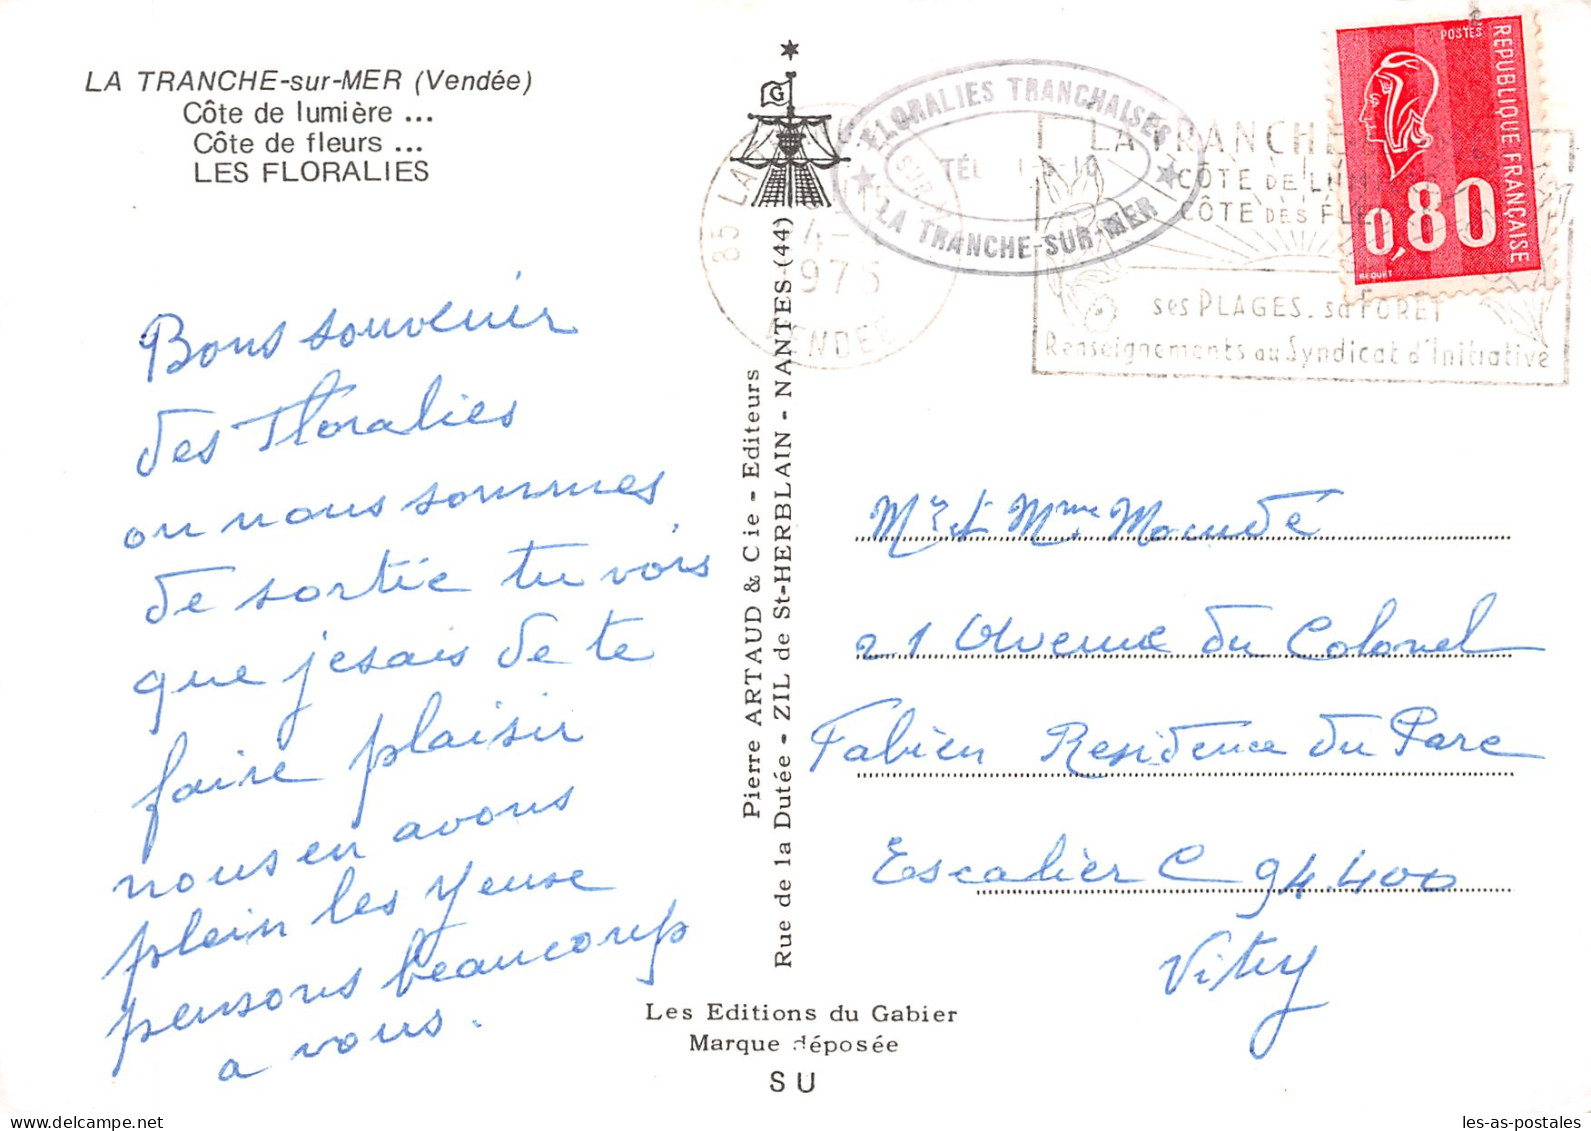 LA TRANCHE-sur-MER (Vendée)
Côte de lumière ...
Côte de fleurs ...
LES FLORALIES
Bons souvenir
des Floralies
ou nous sommes
de sortie tu vois
que jesais de te
faire plaisir
nous en avons
plein les yeuse
pensons beaucoup
a vous.
Pierre ARTAUD & Cie - Editeurs
Rue de la Dutée - ZIL de St-HERBLAIN - NANTES (44)
G
Les Editions du Gabier
Marque déposée
SU
FLORALIES TRANCHAISES
TÉL
LA TRANCHE-SUR-MER
85 LA
SUR
1975
VENDEE
LA TRANCHE
CÔTE DE LUMIÈRE
CÔTE DES FLE
ses PLAGES. sa FORET
Renseignements au Syndicat d'Initiative
POSTES
REPUBLIQUE FRANÇAISE
0,80
BEQUET
Mr et Mme
21 Avenue du Colonel
Fabien Residence du Parc
Escalier C 94.400
Vitry
les-as-postales